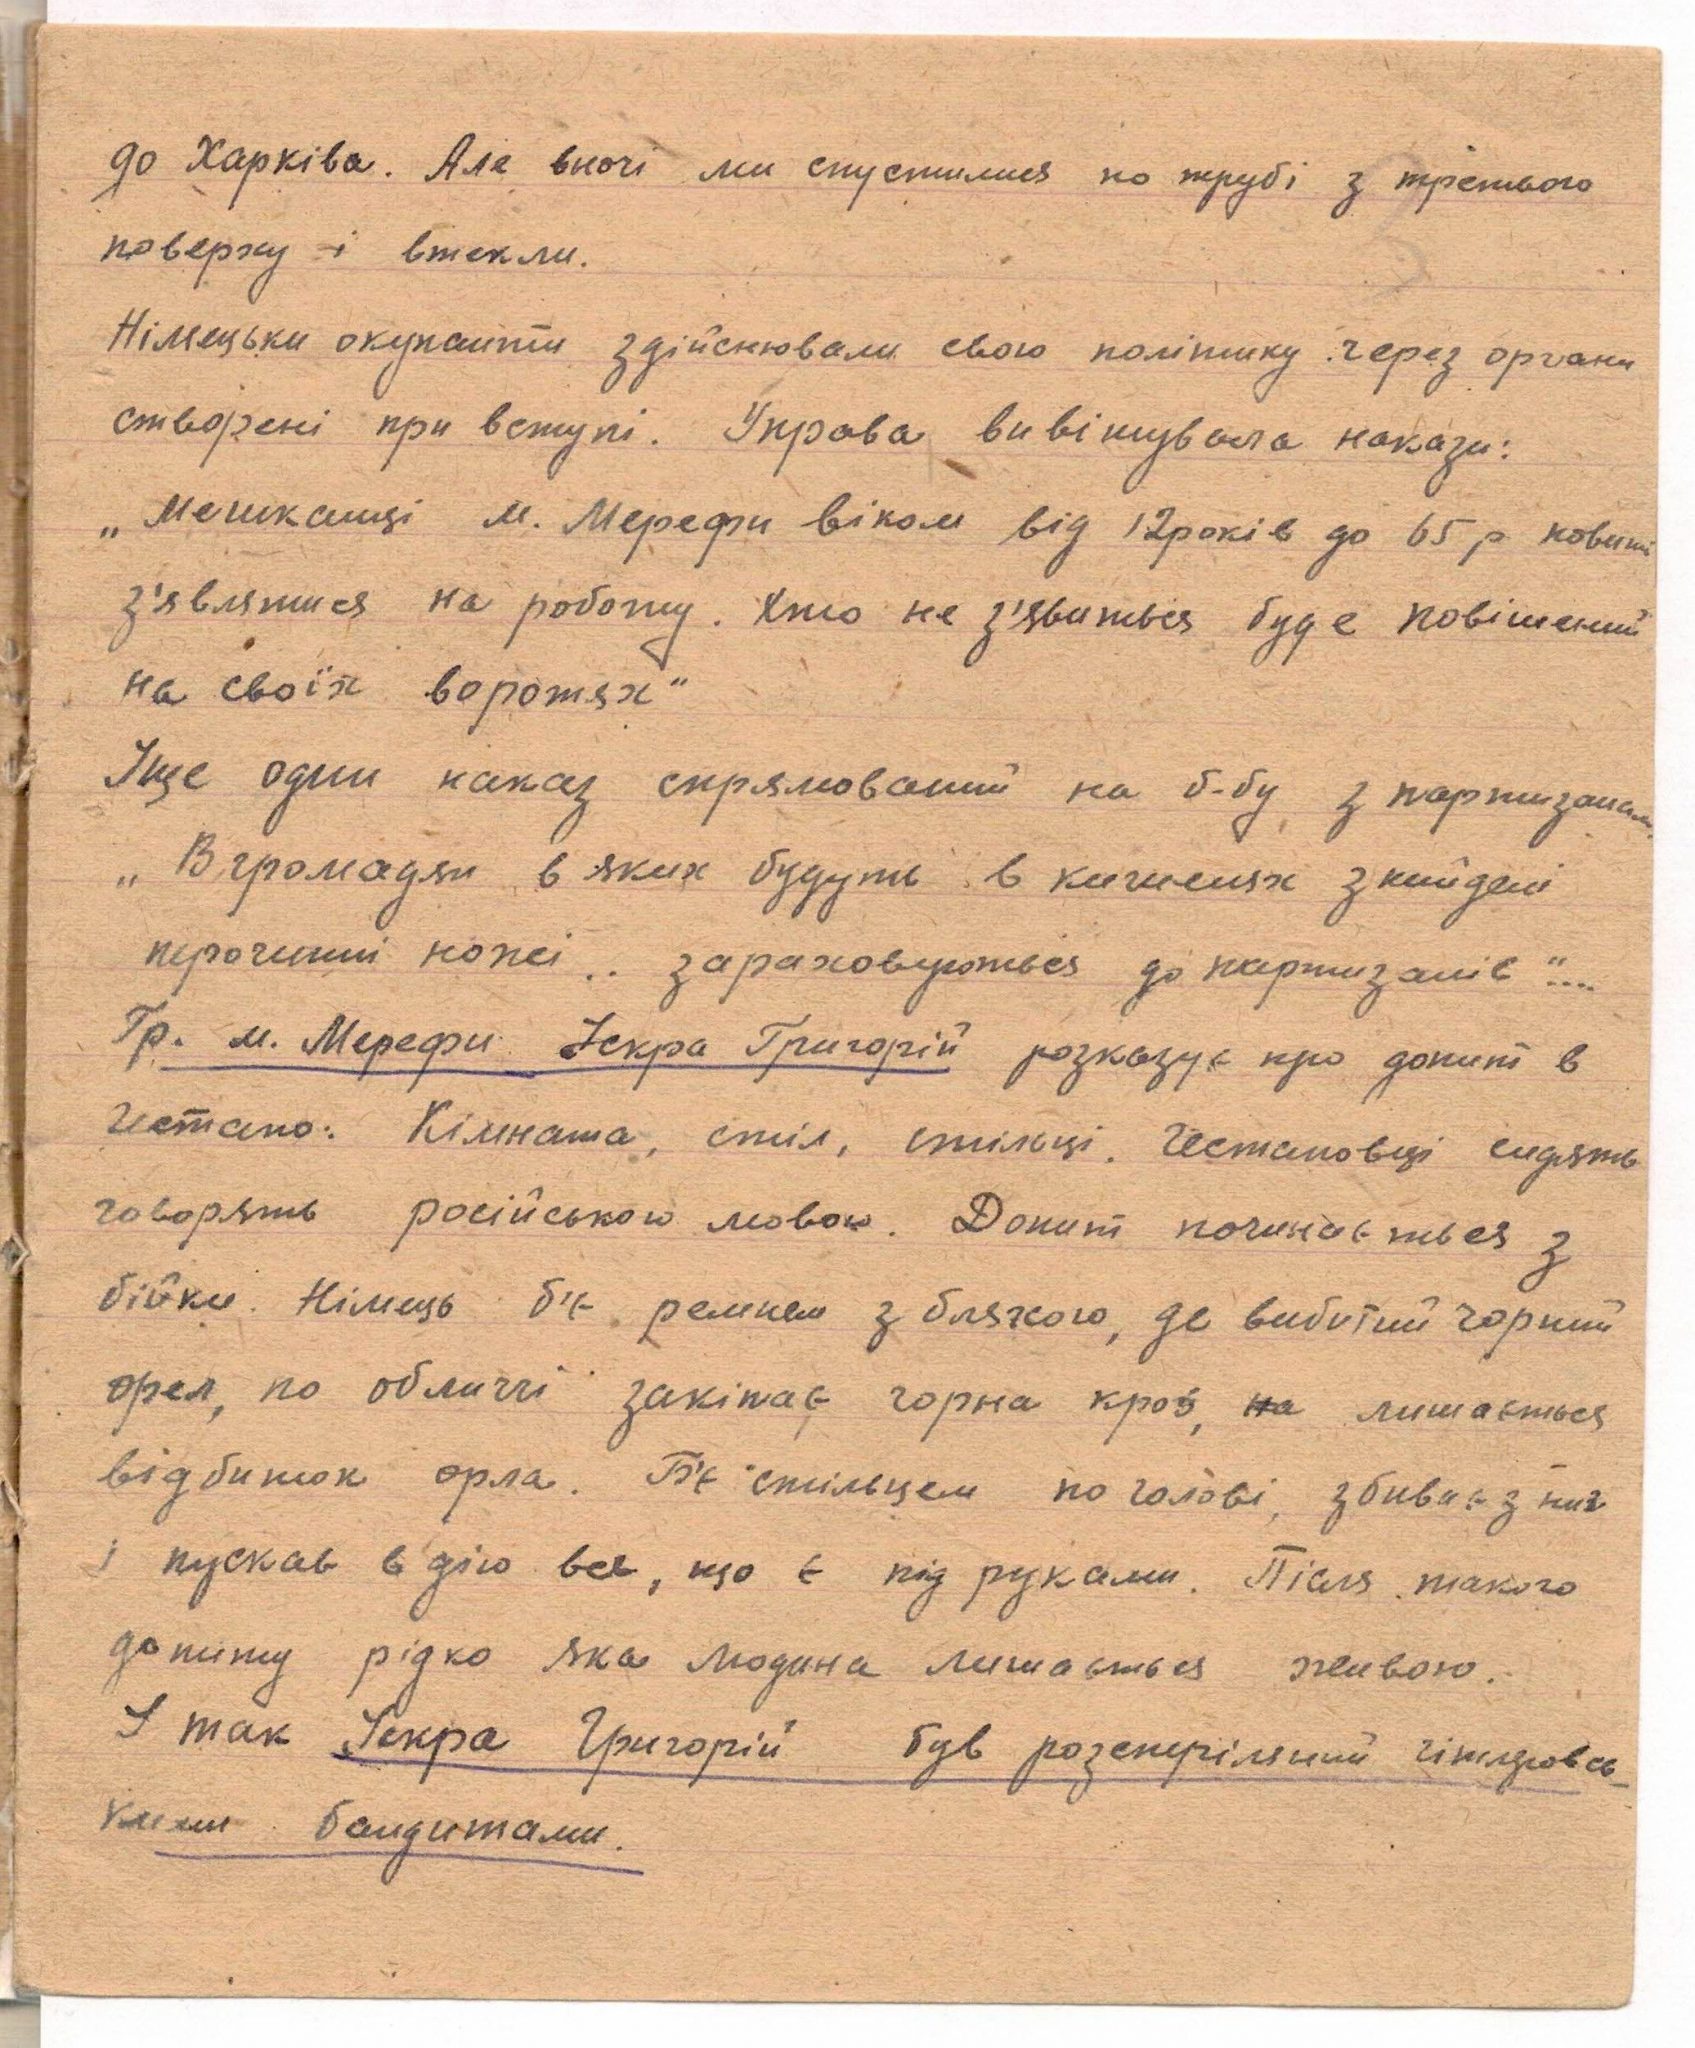 до Харківа. Але вночі ми спустилися по трубі з третього
поверху і втекли.
Німецьки окупанти здійснювали свою політику через органи
створені при вступі. Управа вивішувала накази:
„Мешканці м. Мерефи віком від 12років до 65 р повинні
з'являтися на роботу. Хто не з'явиться буде повішений
на своїх воротях"
Іще один наказ спрямований на б-бу з партизанами.
„В громадян в яких будуть в кишенях знайдені
перочинні ножі .. зараховуються до партизанів"....
Гр. м. Мерефи Іскра Григорій розказує про допит в
гестапо: Кімната, стіл, стільці. Гестаповці сидять
говорять російською мовою. Допит починається з
бійки. Німець б'є ремнем з бляхою, де вибитий чорний
орел, по обличчі закіпає чорна кров, на лишається
відбиток орла. Б'є стільцем по голові, збиває з ніг
і пускає в дію все, що є під руками. Після такого
допиту рідко яка людина лишається живою.
І так Іскра Григорій був розстріляний гітлеровсь-
кими бандитами.